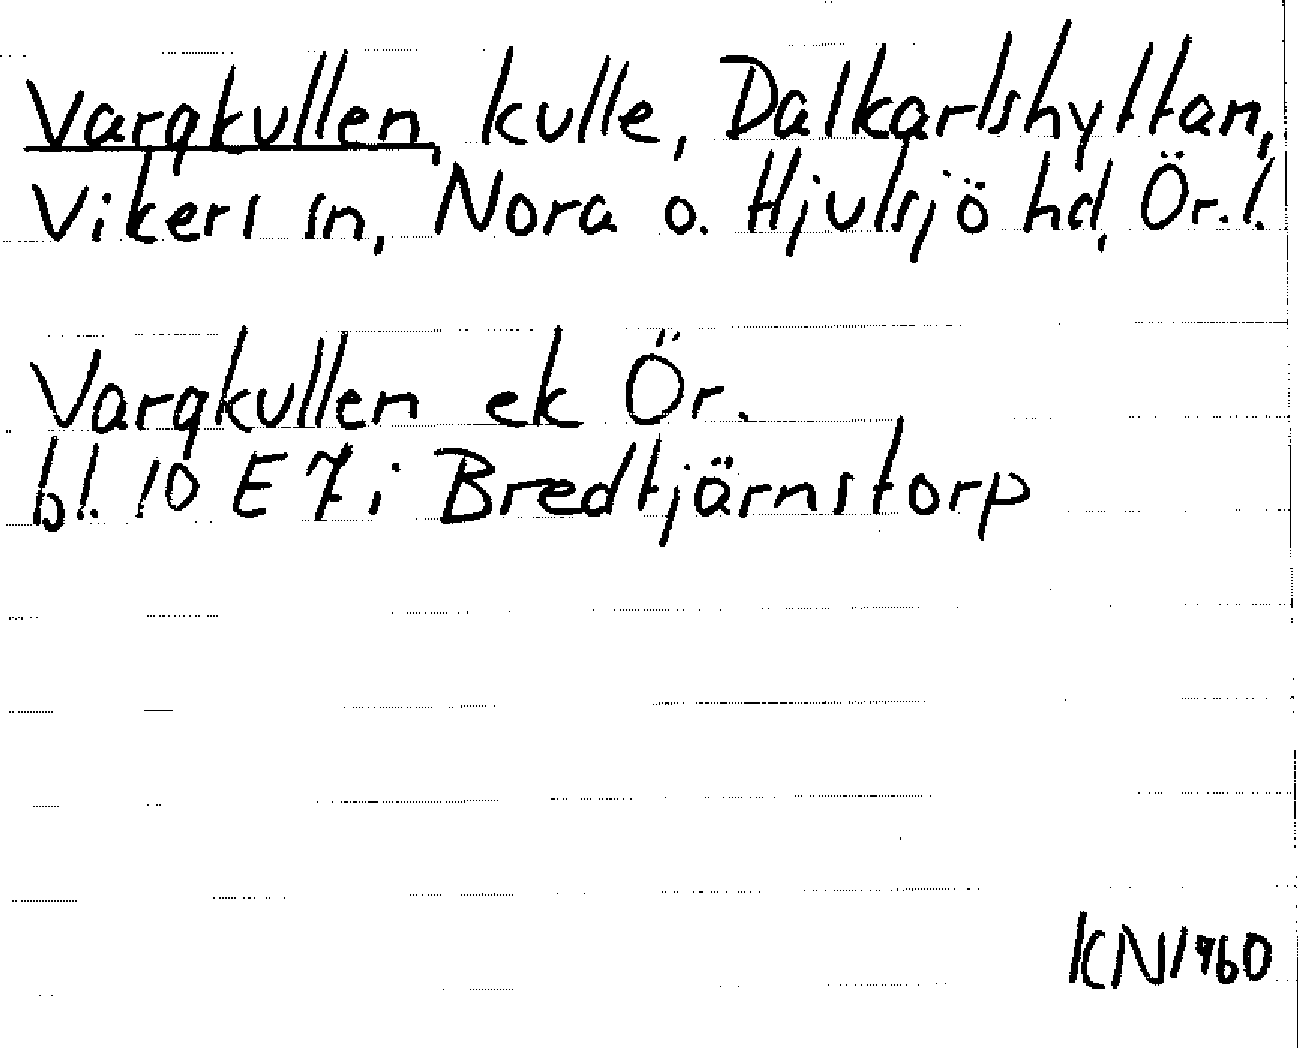 Vargkullen, kulle, Dalkarlshyttan,
Vikers sn, Nora o. Hjulsjö hd, Ör. l.
Vargkullen ek Ör.
bl. 10 E 7 i Bredtjärnstorp
KN 1960